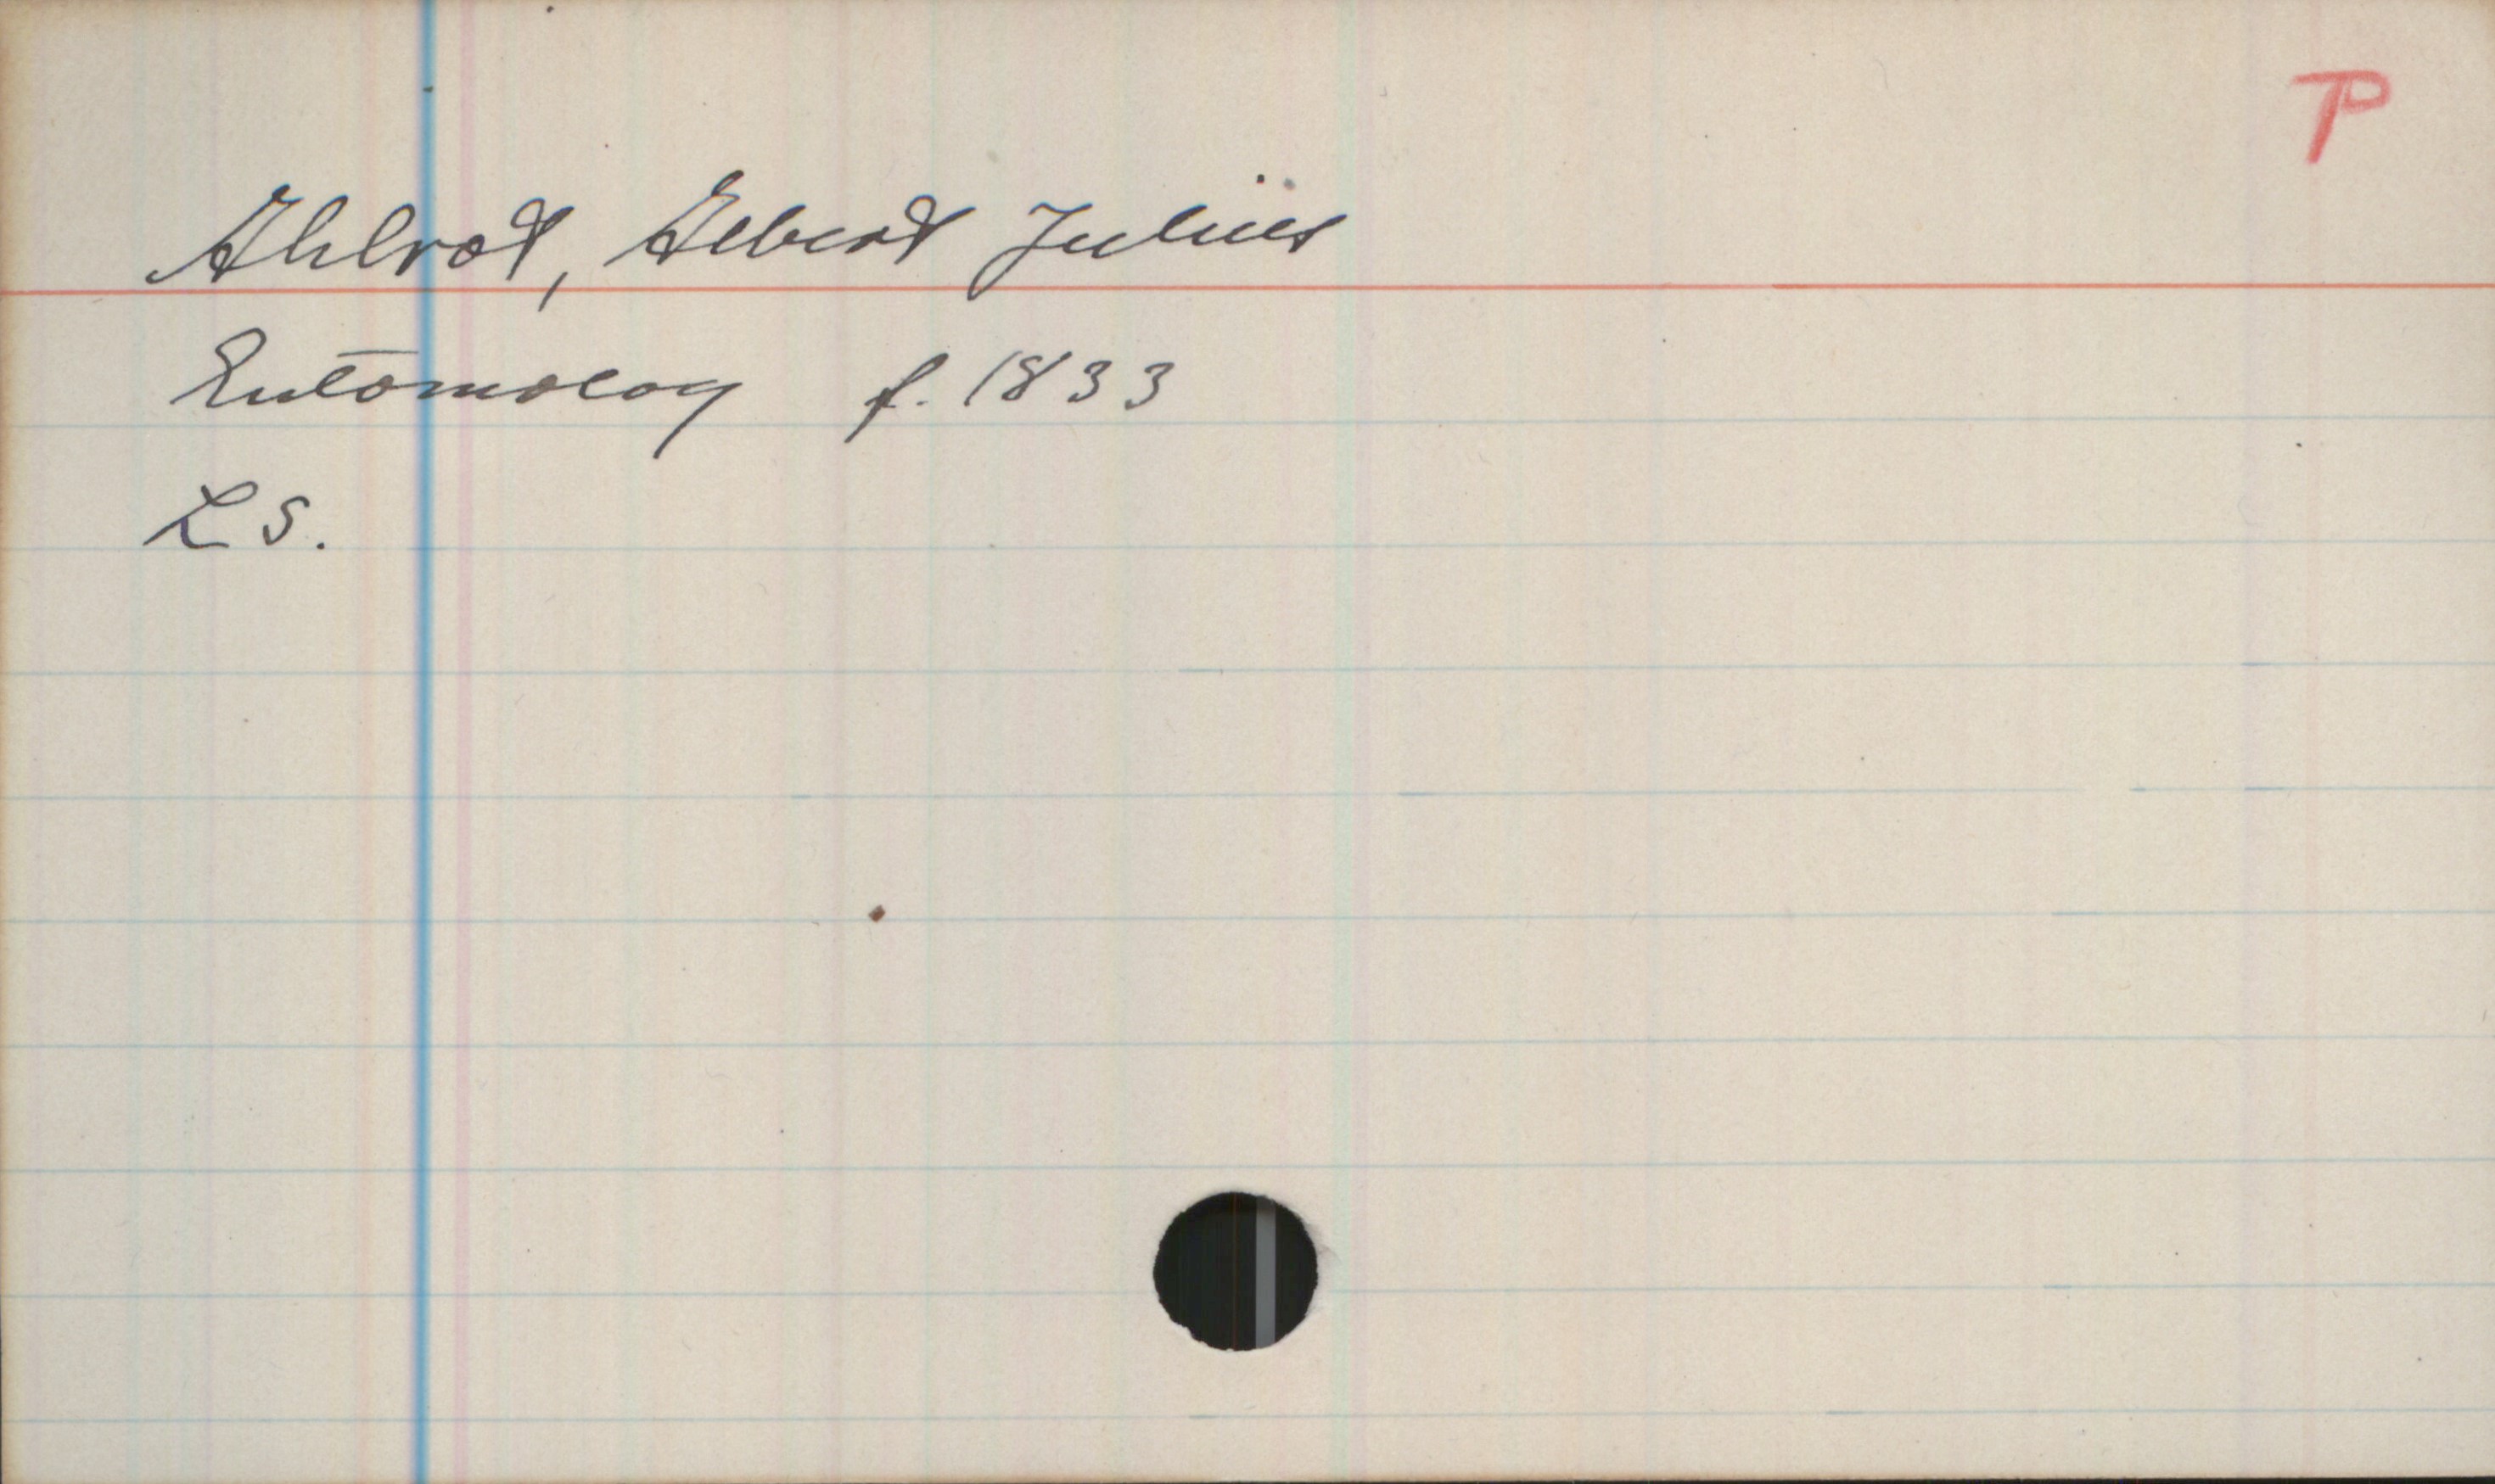 P
Ahlrot, Albert Julius
Entomolog f. 1833
L S.